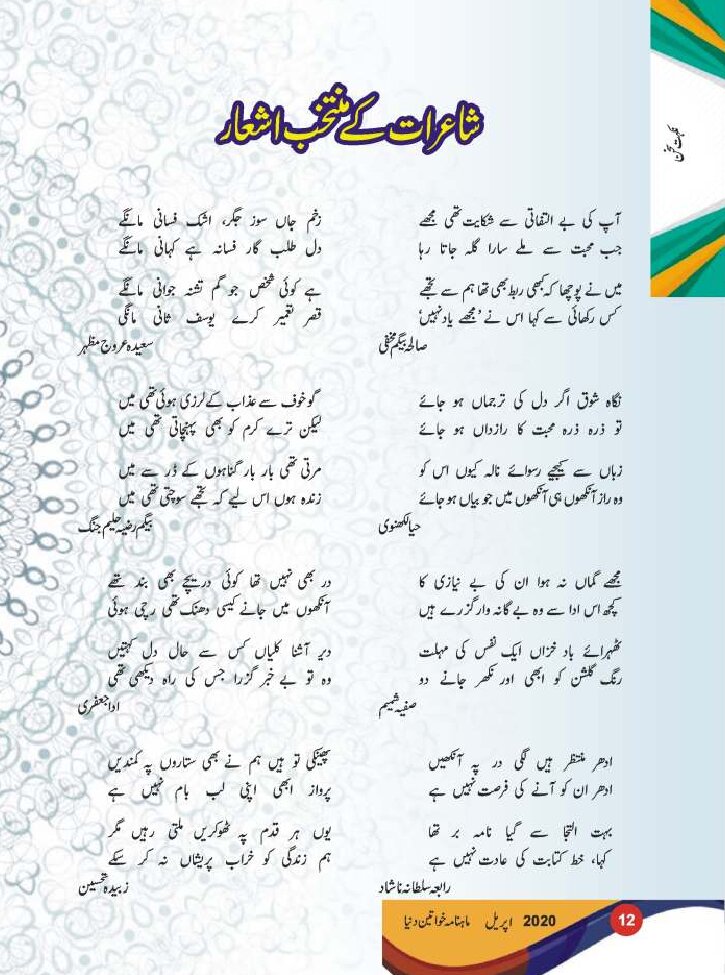 شاعرات کے منتخب اشعار
آپ کی بے التفاتی سے شکایت تھی مجھے
جب محبت سے ملے سارا گلہ جاتا رہا
میں نے پوچھا کہ کبھی ربط بھی تھا ہم سے تجھے
کس رکھائی سے کہا اس نے ’مجھے یاد نہیں‘
صالحہ بیگم مخفی
نگاہ شوق اگر دل کی ترجماں ہو جائے
تو ذرہ ذرہ محبت کا رازداں ہو جائے
زباں سے کیجیے رسوائے نالہ کیوں اس کو
وہ راز آنکھوں ہی آنکھوں میں جو بیاں ہو جائے
حیا لکھنوی
مجھے گماں نہ ہوا ان کی بے نیازی کا
کچھ اس ادا سے وہ بے گانہ وار گزرے ہیں
ٹھہرائے باد خزاں ایک نفس کی مہلت
رنگ گلشن کو ابھی اور نکھر جانے دو
صفیہ شمیم
ادھر منتظر ہیں لگی در پہ آنکھیں
ادھر ان کو آنے کی فرصت نہیں ہے
بہت التجا سے گیا نامہ بر تھا
کہا، خط کتابت کی عادت نہیں ہے
رابعہ سلطانہ ناشاد
زخم جاں سوز جگر، اشک فسانی مانگے
دل طلب گار فسانہ ہے کہانی مانگے
ہے کوئی شخص جو گم تشنہ جوانی مانگے
قصر تعمیر کرے یوسف ثانی مانگی
سعیدہ عروج مظہر
گو خوف سے عذاب کے لرزی ہوئی تھی میں
لیکن ترے کرم کو بھی پہنچاتی تھی میں
مرتی تھی بار بار گناہوں کے ڈر سے میں
زندہ ہوں اس لیے کہ تجھے سوچتی تھی میں
بیگم رضیہ حلیم جنگ
در بھی نہیں تھا کوئی دریچے بھی بند تھے
آنکھوں میں جانے کیسی دھنک تھی رچی ہوئی
دیر آشنا کلیاں کس سے حال دل کہتیں
وہ تو بے خبر گزرا جس کی راہ دیکھی تھی
ادا جعفری
پھینکی تو ہیں ہم نے بھی ستاروں پہ کمندیں
پرواز ابھی اپنی لب بام نہیں ہے
یوں ہر قدم پہ ٹھوکریں ملتی رہیں مگر
ہم زندگی کو خراب پریشاں نہ کر سکے
زبیدہ تحسین
ماہنامہ خواتین دنیا اپریل 2020 12